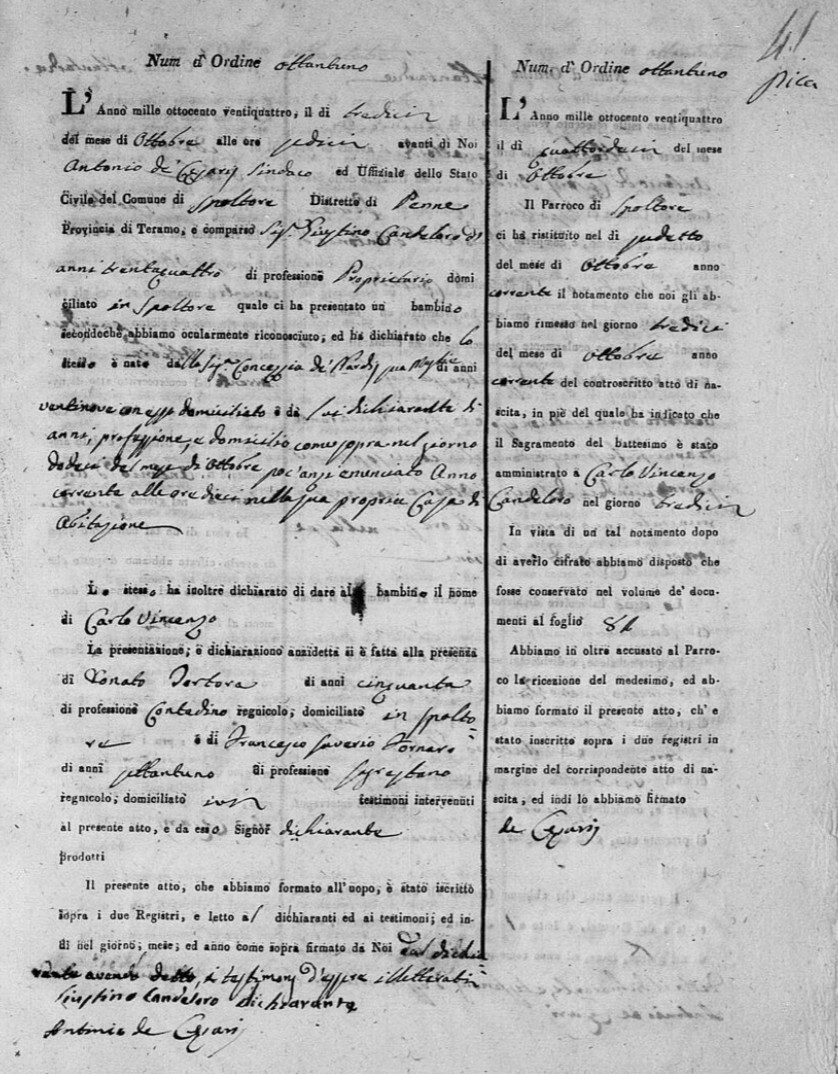 41
pica
Num d'Ordine ottantuno
L'Anno mille ottocento ventiquattro, il di tredici
del mese di Ottobre alle ore sedici avanti di Noi
Antonio de Cesarij Sindaco ed Uffiziale dello Stato
Civile del Comune di Spoltore Distretto di Penne
Provincia di Teramo, e comparso Sig.r Giustino Candeloro di
anni trentaquattro di professione Proprietario domi
ciliato in Spoltore quale ci ha presentato un bambino
secondochè abbiamo ocularmente riconosciuto, ed ha dichiarato che lo
stesso è nato dalla Sig.a Concezzia de Nardij sua Moglie di anni
ventinove con esso domiciliato e di lui dichiarante di
anni, professione, e domicilio come sopra nel giorno
dodeci del mese di Ottobre poc'anzi enunciato Anno
corrente alle ore dieci nella sua propria Casa di
Abitazione
Lo stesso ha inoltre dichiarato di dare al bambino il nome
di Carlo Vincenzo
La presentazione, e dichiarazione anzidetta si è fatta alla presenza
di Donato Tortora di anni cinquanta
di professione Contadino regnicolo, domiciliato in Spolto=
re e di Francesco Saverio Fornaro
di anni settantuno di professione Sagrestano
regnicolo, domiciliato ivi testimoni intervenuti
al presente atto, e da esso Signor dichiarante
prodotti
Il presente atto, che abbiamo formato all'uopo, è stato iscritto
sopra i due Registri, e letto al dichiaranti ed ai testimoni; ed in-
di nel giorno; mese; ed anno come sopra firmato da Noi dal dichia=
rante avendo detto, i testimonj d'essere illetterati
Giustino Candeloro dichiarante
Antonio de Cesarij
Num. d'Ordine ottantuno
L'Anno mille ottocento ventiquattro
il di quattordeci del mese
di Ottobre
Il Parroco di Spoltore
ci ha ristituito nel di sudetto
del mese di Ottobre anno
corrente il notamento che noi gli ab-
biamo rimesso nel giorno tredici
del mese di Ottobre anno
corrente del controscritto atto di na-
scita, in piè del quale ha indicato che
il Sagramento del battesimo è stato
amministrato a Carlo Vincenzo
Candeloro nel giorno tredici
In vista di un tal notamento dopo
di averlo cifrato abbiamo disposto che
fosse conservato nel volume de' docu-
menti al foglio 81
Abbiamo in oltre accusato al Parro-
co la ricezione del medesimo, ed ab-
biamo formato il presente atto, ch' e
stato inscritto sopra i due registri in
margine del corrispondente atto di na-
scita, ed indi lo abbiamo firmato
de Cesarij